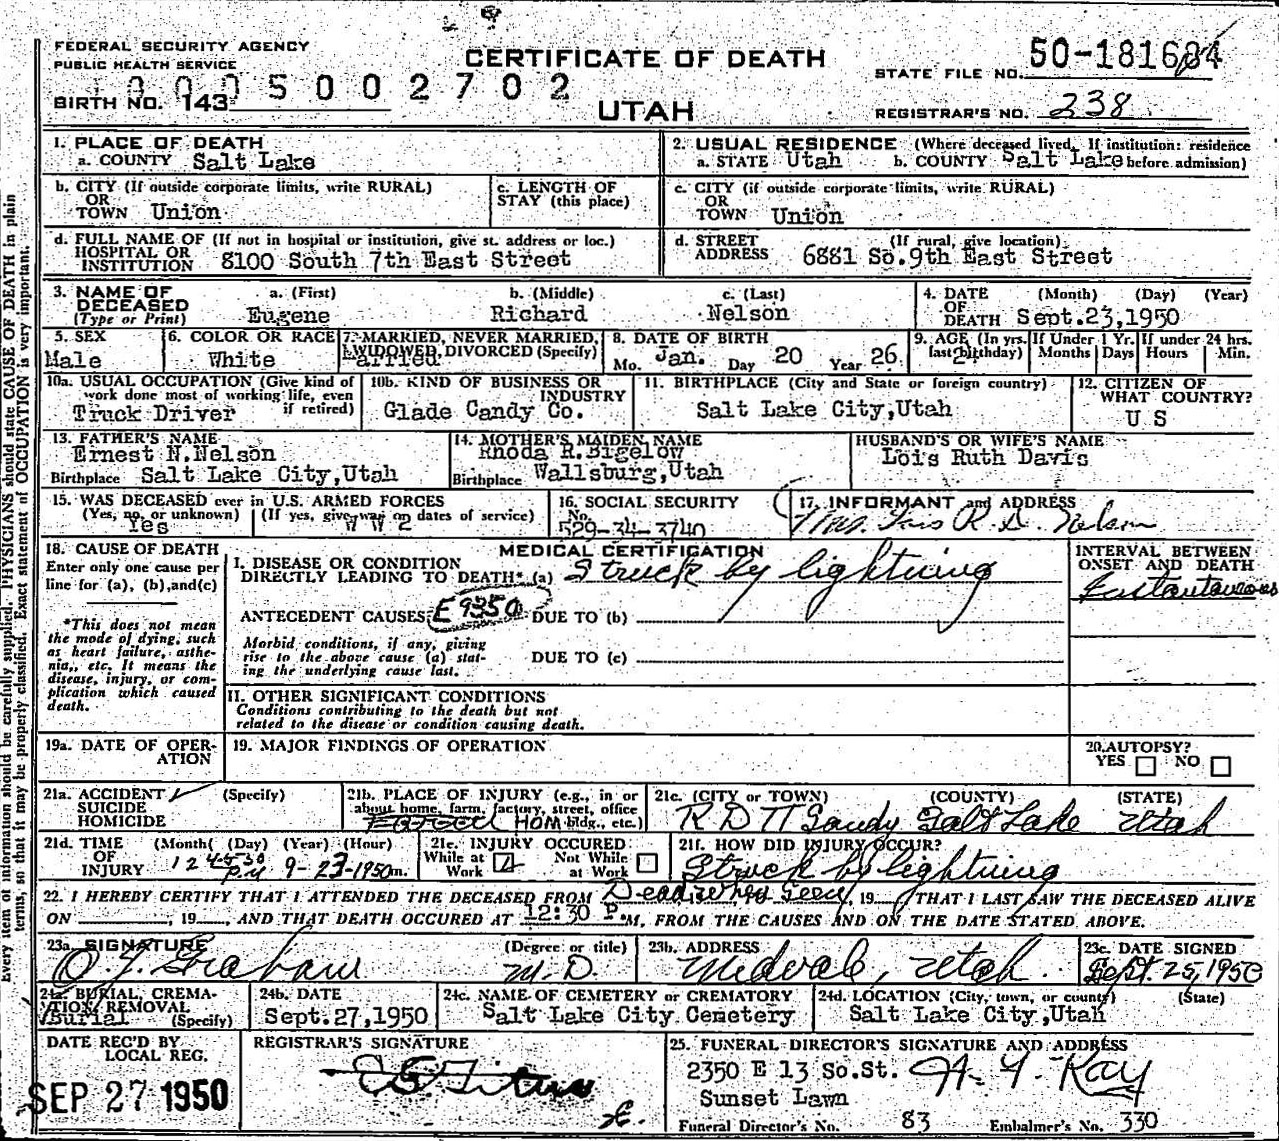 FEDERAL SECURITY AGENCY
PUBLIC HEALTH SERVICE
CERTIFICATE OF DEATH
STATE FILE NO. 50-181684
0005002702
BIRTH NO. 143
UTAH
REGISTRAR'S NO. 238
1. PLACE OF DEATH
a. COUNTY Salt Lake
2. USUAL RESIDENCE (Where deceased lived. If institution: residence before admission)
a. STATE Utah b. COUNTY Salt Lake
b. CITY (If outside corporate limits, write RURAL)
OR
TOWN Union
c. LENGTH OF
STAY (this place)
c. CITY (if outside corporate limits, write RURAL)
OR
TOWN Union
d. FULL NAME OF (If not in hospital or institution, give st. address or loc.)
HOSPITAL OR
INSTITUTION 8100 South 7th East Street
d. STREET (If rural, give location)
ADDRESS 6881 So.9th East Street
3. NAME OF
DECEASED
(Type or Print)
a. (First) Eugene
b. (Middle) Richard
c. (Last) Nelson
4. DATE (Month) (Day) (Year)
OF
DEATH Sept.23,1950
5. SEX
Male
6. COLOR OR RACE
White
7. MARRIED, NEVER MARRIED,
WIDOWED, DIVORCED (Specify)
arried
8. DATE OF BIRTH
Mo. Jan. Day 20 Year 26
9. AGE (In yrs. last birthday)
If Under 1 Yr.
Months Days
If under 24 hrs.
Hours Min.
10a. USUAL OCCUPATION (Give kind of
work done most of working life, even
if retired)
Truck Driver
10b. KIND OF BUSINESS OR
INDUSTRY
Glade Candy Co.
11. BIRTHPLACE (City and State or foreign country)
Salt Lake City,Utah
12. CITIZEN OF
WHAT COUNTRY?
U S
13. FATHER'S NAME
Ernest N.Nelson
Birthplace Salt Lake City,Utah
14. MOTHER'S MAIDEN NAME
Rhoda R.Bigelow
Birthplace Wallsburg,Utah
HUSBAND'S OR WIFE'S NAME
Lois Ruth Davis
15. WAS DECEASED ever in U.S. ARMED FORCES
(Yes, no, or unknown) (If yes, give war on dates of service)
Yes W W 2
16. SOCIAL SECURITY
No.
529-34-3740
17. INFORMANT and ADDRESS
Mrs. Lois R. D. Nelson
18. CAUSE OF DEATH
Enter only one cause per
line for (a), (b),and(c)
*This does not mean
the mode of dying, such
as heart failure, asthe-
nia,, etc. It means the
disease, injury, or com-
plication which caused
death.
MEDICAL CERTIFICATION
I. DISEASE OR CONDITION
DIRECTLY LEADING TO DEATH* (a) Struck by lightning
ANTECEDENT CAUSES E 9350 DUE TO (b)
Morbid conditions, if any, giving
rise to the above cause (a) stat-
ing the underlying cause last.
DUE TO (c)
II. OTHER SIGNIFICANT CONDITIONS
Conditions contributing to the death but not
related to the disease or condition causing death.
INTERVAL BETWEEN
ONSET AND DEATH
Instantaneous
19a. DATE OF OPER-
ATION
19. MAJOR FINDINGS OF OPERATION
20. AUTOPSY?
YES NO
21a. ACCIDENT (Specify)
SUICIDE
HOMICIDE
21b. PLACE OF INJURY (e.g., in or
about home, farm, factory, street, office
bldg., etc.)
HOM
21c. (CITY or TOWN) (COUNTY) (STATE)
Sandy Salt Lake Utah
21d. TIME (Month) (Day) (Year) (Hour)
OF
INJURY 9-23-1950 m.
21e. INJURY OCCURED
While at Work Not While at Work
21f. HOW DID INJURY OCCUR?
Struck by lightning
22. I HEREBY CERTIFY THAT I ATTENDED THE DECEASED FROM Dead when Seen, 19 THAT I LAST SAW THE DECEASED ALIVE
ON , 19 , AND THAT DEATH OCCURED AT 12:30 P.M, FROM THE CAUSES AND ON THE DATE STATED ABOVE.
23a. SIGNATURE (Degree or title)
O. J. Graham M.D.
23b. ADDRESS
Midvale, Utah
23c. DATE SIGNED
Sept. 25, 1950
24a. BURIAL, CREMA-
TION, REMOVAL
(Specify)
Burial
24b. DATE
Sept.27,1950
24c. NAME OF CEMETERY or CREMATORY
Salt Lake City Cemetery
24d. LOCATION (City, town, or county) (State)
Salt Lake City,Utah
DATE REC'D BY
LOCAL REG.
SEP 27 1950
REGISTRAR'S SIGNATURE
25. FUNERAL DIRECTOR'S SIGNATURE AND ADDRESS
2350 E 13 So.St.
Sunset Lawn
Funeral Director's No. 83 Embalmer's No. 330
Every item of information should be carefully supplied. PHYSICIANS should state CAUSE OF DEATH in plain
terms, so that it may be properly classified. Exact statement of OCCUPATION is very important.